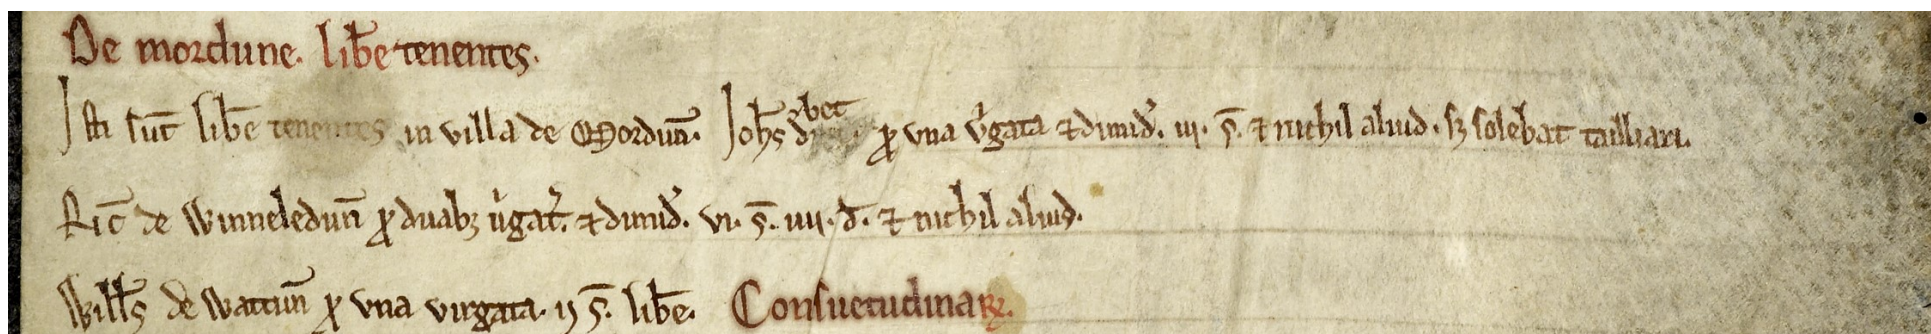 De mordune. lib̄e tenentes.
Isti sūt lib̄e tenentes in villa de Mordun̄. Joh̄s ꝓ una v̓gata ⁊ dimid̓. iii. s̄. ⁊ nichil aliud. sꝫ solebat talliari.
Ric̄ de Winneledun̄ ꝓ duabꝫ v̓gat̓. ⁊ dimid̓. vi. s̄. iiii. d̄. ⁊ nichil aliud.
Will̄s de Wattun̄ ꝓ una virgata. ij s̄. lib̄e. Consuetudinarꝝ.